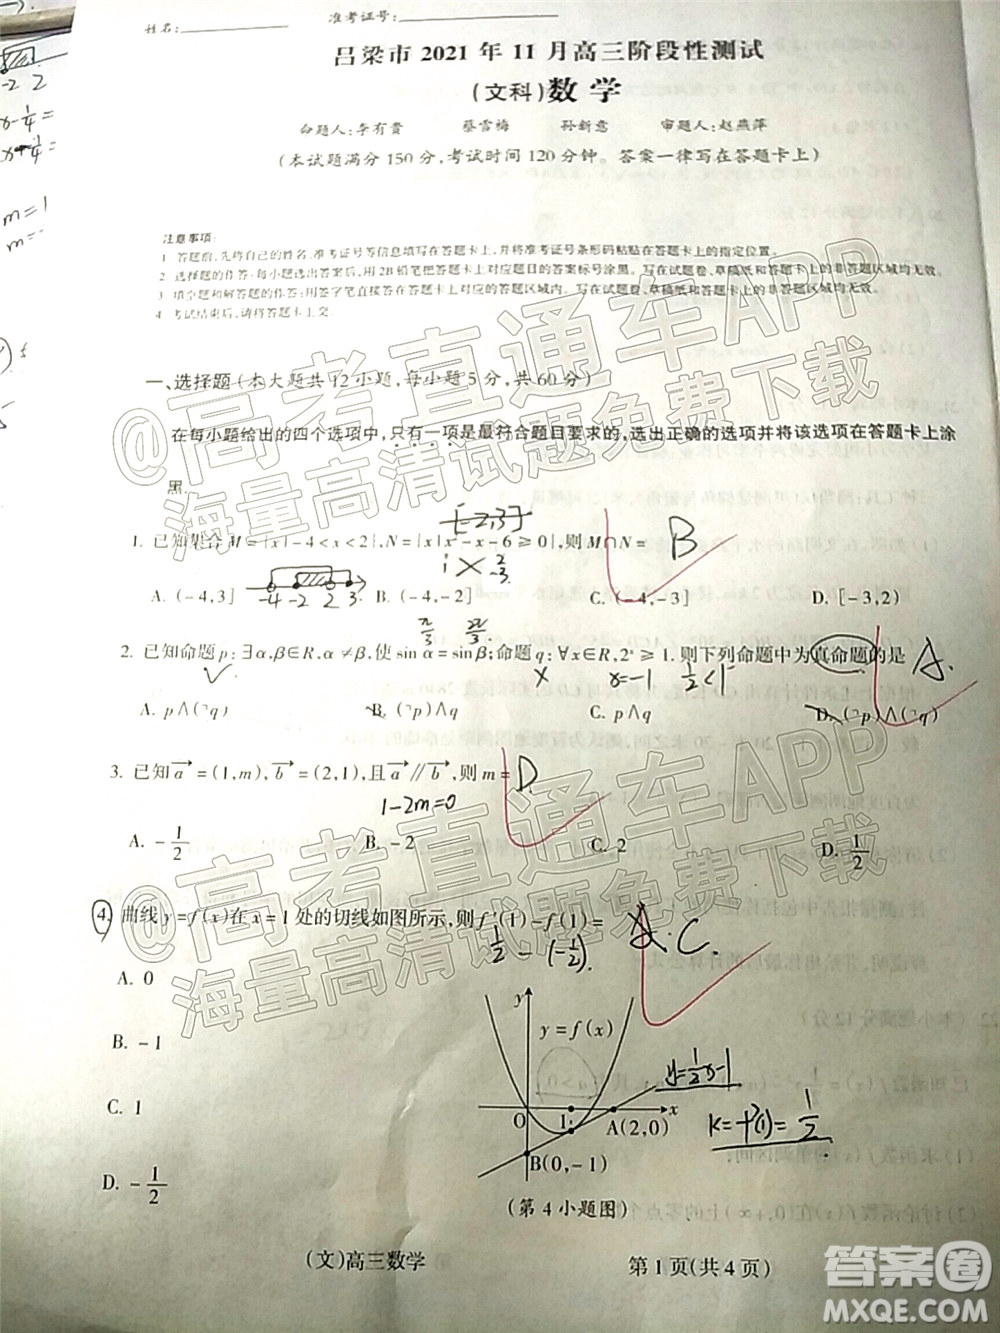 姓名:________ 准考证号:________
吕梁市 2021 年 11 月高三阶段性测试
(文科)数学
命题人:李有贵 蔡雪梅 孙新意 审题人:赵燕萍
(本试题满分 150 分,考试时间 120 分钟。答案一律写在答题卡上)
注意事项:
1 答题前,先将自己的姓名、准考证号等信息填写在答题卡上,并将准考证号条形码粘贴在答题卡上的指定位置。
2 选择题的作答:每小题选出答案后,用 2B 铅笔把答题卡上对应题目的答案标号涂黑。写在试题卷、草稿纸和答题卡上的非答题区域均无效。
3 填空题和解答题的作答:用签字笔直接答在答题卡上对应的答题区域内。写在试题卷、草稿纸和答题卡上的非答题区域均无效。
4 考试结束后,请将答题卡上交.
一、选择题(本大题共 12 小题,每小题 5 分,共 60 分)
在每小题给出的四个选项中,只有一项是最符合题目要求的,选出正确的选项并将该选项在答题卡上涂
黑.
[-2,3]
1. 已知集合 M={x|-4<x<2},N={x|x²-x-6≥0},则 M∩N= B
A. (-4,3] B. (-4,-2] C. (-4,-3] D. [-3,2)
-4 -2 2 3
π/3 2π/3
2. 已知命题 p:∃α,β∈R,α≠β,使 sin α=sin β;命题 q:∀x∈R,2ˣ≥1.则下列命题中为真命题的是 A.
x=-1 1/2<1
A. p∧(¬q) B. (¬p)∧q C. p∧q D. (¬p)∧(¬q)
3. 已知 a→=(1,m),b→=(2,1),且 a→∥b→,则 m= D
1-2m=0
A. -1/2 B. -2 C. 2 D. 1/2
4. 曲线 y=f(x)在 x=1 处的切线如图所示,则 f'(1)-f(1)= C.
1/2-(-1/2).
A. 0
B. -1
C. 1
D. -1/2
y
y=f(x)
y=1/2x-1
O 1 A(2,0) x
k=f'(1)=1/2
B(0,-1)
(第 4 小题图)
(文)高三数学 第 1 页(共 4 页)
@高考直通车APP
海量高清试题免费下载
@高考直通车APP
海量高清试题免费下载
答案圈
MXQE.COM